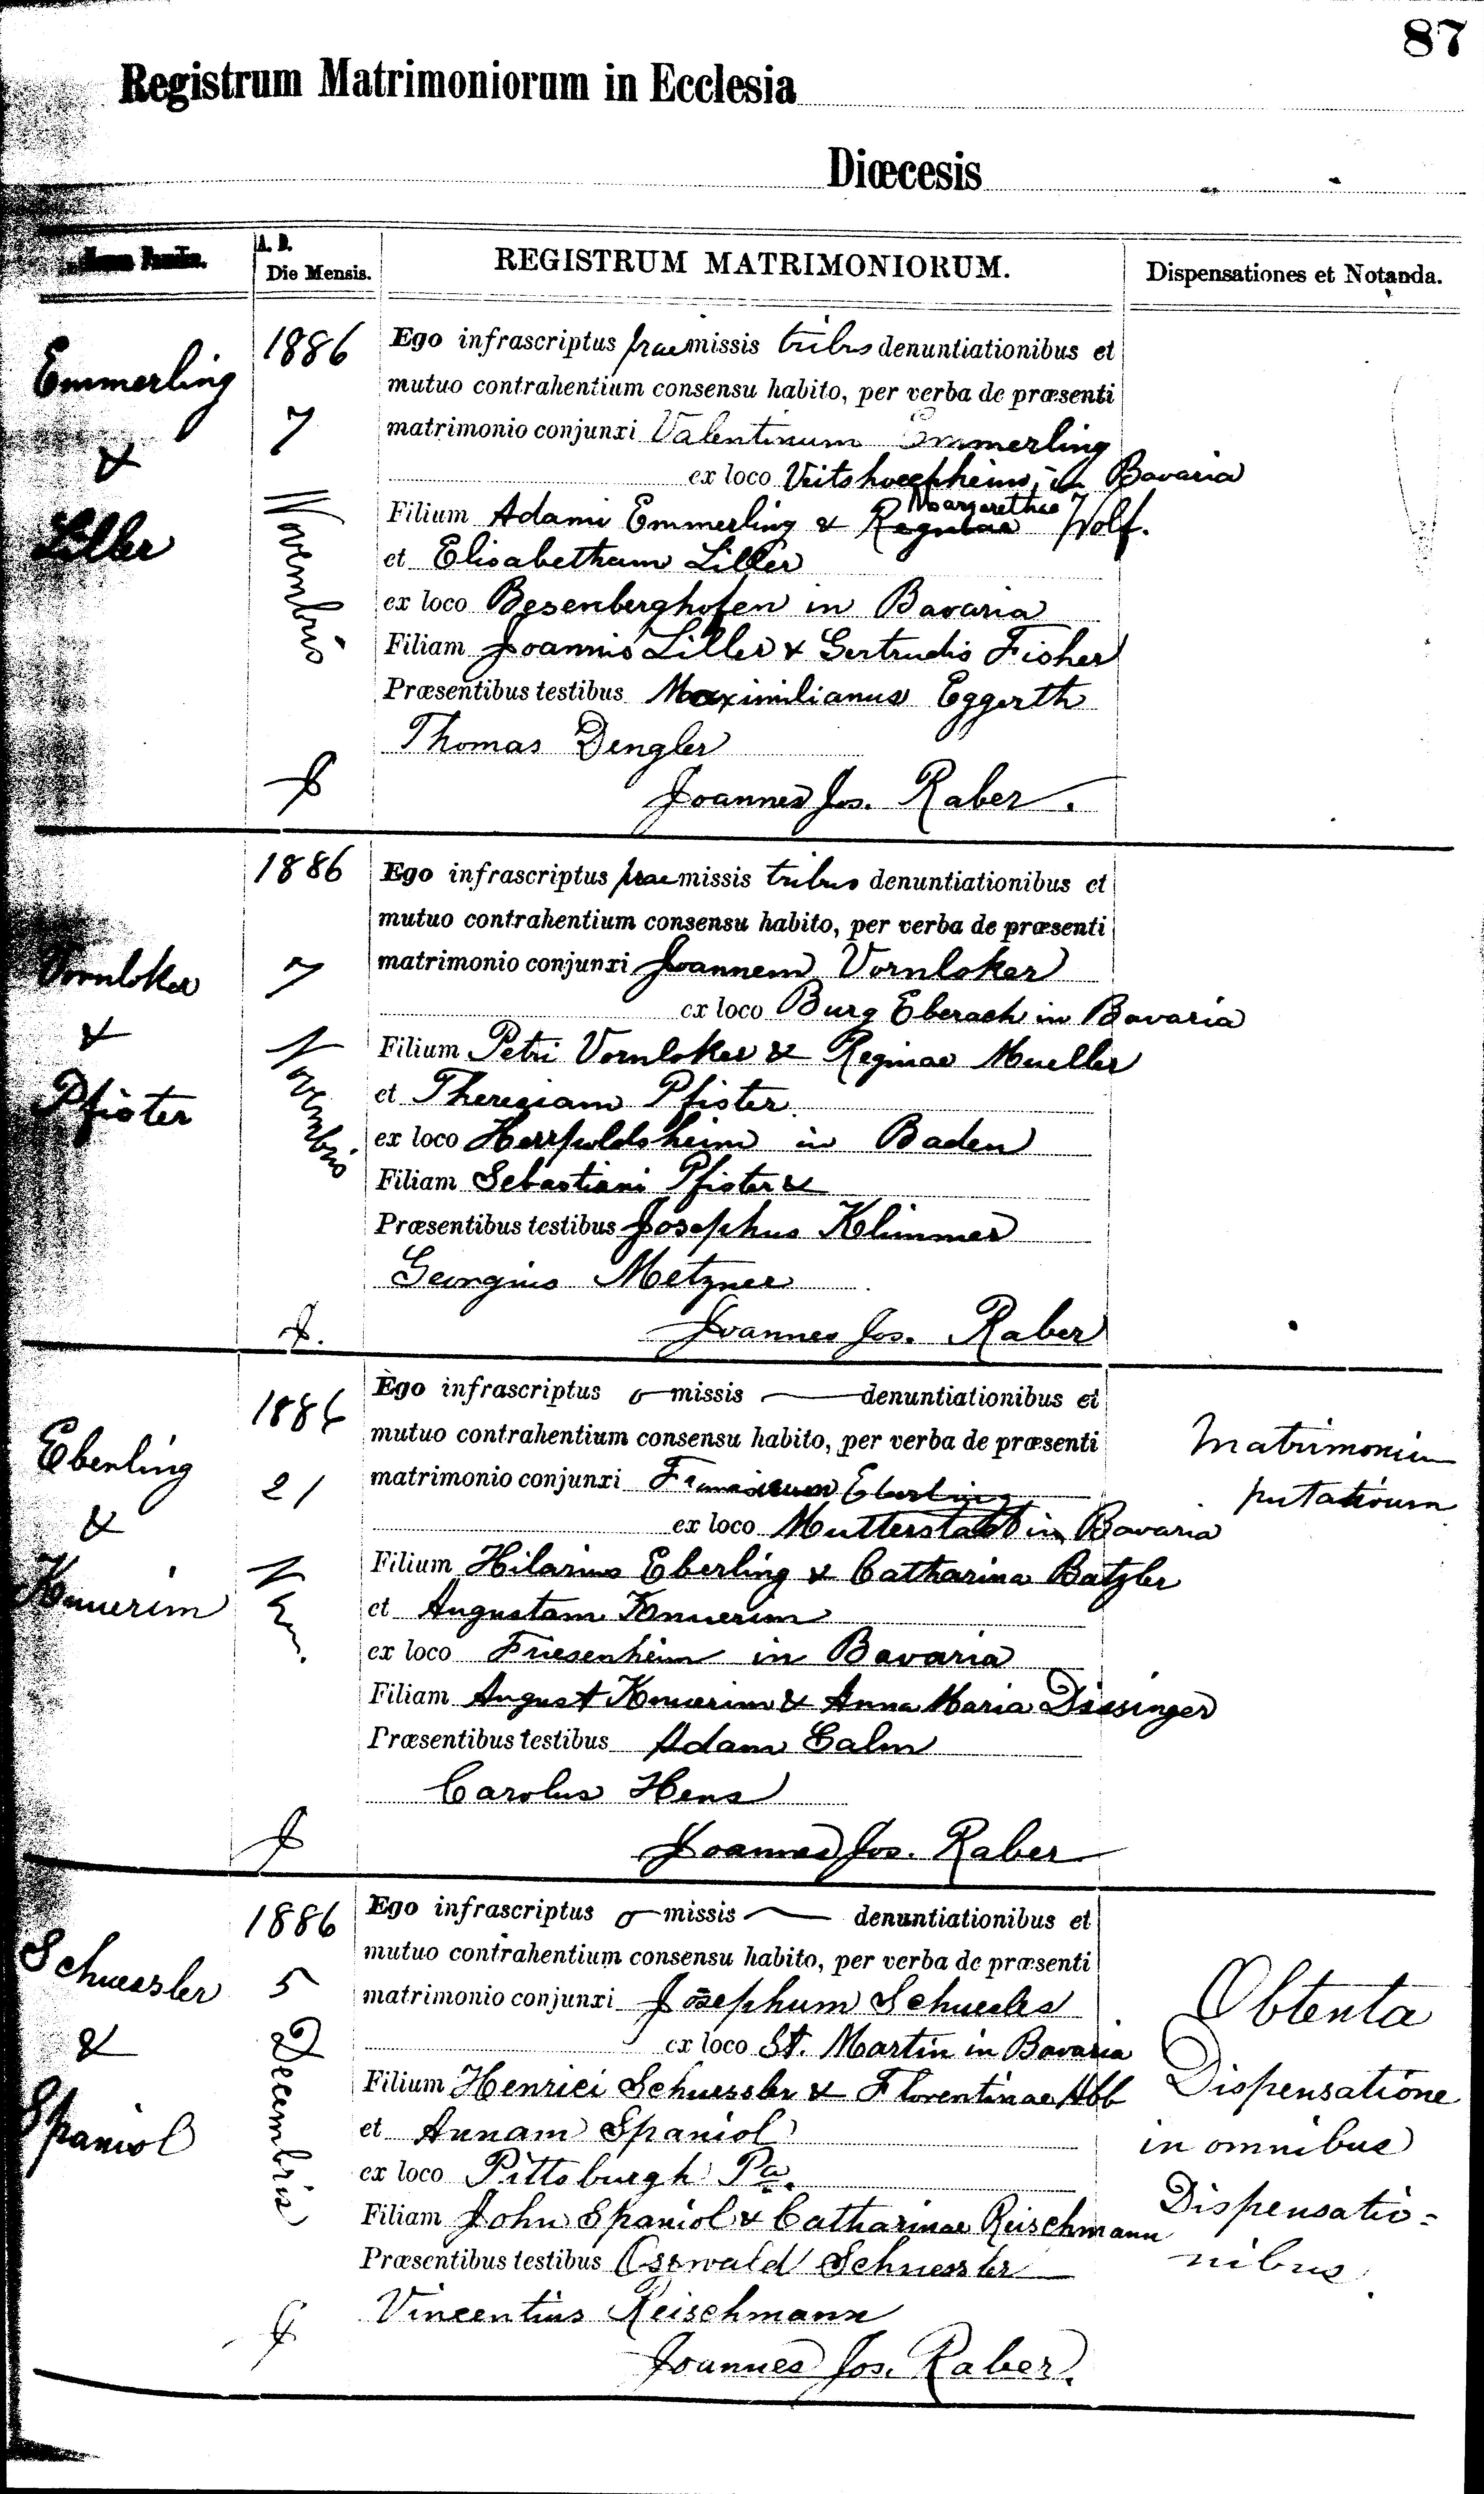 87
Registrum Matrimoniorum in Ecclesia
Diœcesis
A. D.
Die Mensis.
REGISTRUM MATRIMONIORUM.
Dispensationes et Notanda.
Emmerling
&
Liller
1886
7
Novembris
Ego infrascriptus praemissis tribus denuntiationibus et
mutuo contrahentium consensu habito, per verba de præsenti
matrimonio conjunxi Valentinum Emmerling
ex loco Veitshoechheim, in Bavaria
Margarethae
Filium Adami Emmerling & Reginae Wolf.
et Elisabetham Liller
ex loco Besenberghofen in Bavaria
Filiam Joannis Liller & Gertrudis Fisher
Præsentibus testibus Maximilianus Eggerth
Thomas Dengler
Joannes Jos. Raber.
Vornloker
&
Pfister
1886
7
Novembris
Ego infrascriptus praemissis tribus denuntiationibus et
mutuo contrahentium consensu habito, per verba de præsenti
matrimonio conjunxi Joannem Vornloker
ex loco Burg Eberach in Bavaria
Filium Petri Vornloker & Reginae Mueller
et Theresiam Pfister
ex loco Herrpoldsheim in Baden
Filiam Sebastiani Pfister &
Præsentibus testibus Josephus Klimmer
Georgius Metzner
Joannes Jos. Raber
Eberling
&
Knuerim
1886
21
Nov.
Ego infrascriptus omissis — denuntiationibus et
mutuo contrahentium consensu habito, per verba de præsenti
matrimonio conjunxi Franciscum Eberling
ex loco Mutterstadt in Bavaria
Filium Hilarius Eberling & Catharina Batzler
et Augustam Knuerim
ex loco Friesenheim in Bavaria
Filiam August Knuerim & Anna Maria Dissinger
Præsentibus testibus Adam Calm
Carolus Hens
Joannes Jos. Raber
Matrimonium
putativum
Schuessler
&
Spaniol
1886
5
Decembris
Ego infrascriptus omissis — denuntiationibus et
mutuo contrahentium consensu habito, per verba de præsenti
matrimonio conjunxi Josephum Schuesler
ex loco St. Martin in Bavaria
Filium Henrici Schuessler & Florentinae Abb
et Annam Spaniol
ex loco Pittsburgh Pa.
Filiam John Spaniol & Catharinae Reischmann
Præsentibus testibus Osswald Schuessler
Vincentius Reischmann
Joannes Jos. Raber.
Obtenta
Dispensatione
in omnibus
Dispensatio=
nibus.